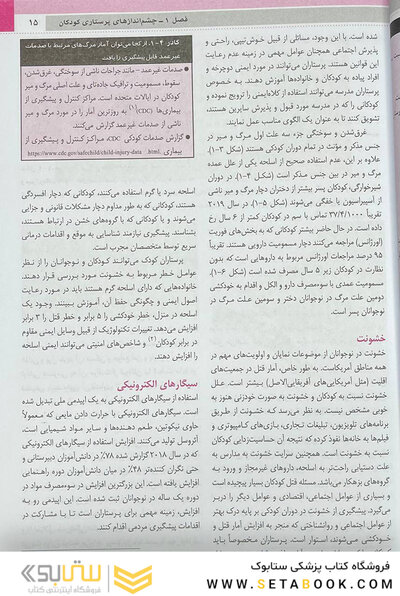 فصل ۱ – چشم‌اندازهای پرستاری کودکان
۱۵
شده است. با وجود این، مسائلی از قبیل خوش‌تیپی، راحتی و
پذیرش اجتماعی همچنان عوامل مهمی در زمینه عدم رعایت
این قوانین هستند. پرستاران می‌توانند در مورد ایمنی دوچرخه و
افراد پیاده به کودکان و خانواده‌ها آموزش دهند. به خصوص
پرستاران مدرسه می‌توانند استفاده از کلاه‌ایمنی را ترویج نموده و
کودکانی را که در مدرسه مورد قبول و پذیرش سایرین هستند،
تشویق کنند تا به عنوان یک الگوی مناسب عمل نمایند.
غرق‌شدن و سوختگی جزء سه علت اول مرگ و میر در
جنس مذکر و مؤنث در تمام دوران کودکی هستند (شکل ۳-۱).
علاوه بر این، عدم استفاده صحیح از اسلحه یکی از علل عمده
مرگ و میر در بین جنس مذکر است (شکل ۴-۱). در دوران
شیرخوارگی، کودکان پسر بیشتر از دختران دچار مرگ و میر ناشی
از آسپیراسیون یا خفگی می‌شوند (شکل ۵-۱). در سال ۲۰۱۹
تقریباً ۳۷/۴/۱۰۰۰ تماس با سم در کودکان کمتر از ۶ سال رخ
داده است، در حال حاضر بیشتر کودکانی که به بخش‌های فوریت
(اورژانس) مراجعه می‌کنند دچار مسمومیت دارویی هستند. تقریباً
۹۵ درصد مراجعات اورژانس مربوط به داروهایی است که بدون
نظارت در کودکان زیر ۵ سال مصرف شده است (شکل ۶-۱).
مسمومیت عمدی با سوء‌مصرف دارو و الکل، و اقدام به خودکشی،
دومین علت مرگ در نوجوانان دختر و سومین علت مرگ در
نوجوانان پسر است.
خشونت
خشونت در نوجوانان از موضوعات نمایان و اولویت‌های مهم در
همه مناطق آمریکاست. به طور خاص، آمار قتل در جمعیت‌های
اقلیت (مثل آمریکایی‌های آفریقایی‌الاصل) بیشتر است. علل
خشونت نسبت به کودکان و خشونت به صورت خودزنی هنوز به
خوبی مشخص نیست. به نظر می‌رسد که خشونت از طریق
برنامه‌های تلویزیون، تبلیغات تجاری، بازی‌های کامپیوتری و
فیلم‌ها به خانه‌ها نفوذ کرده که نتیجه آن حساسیت‌زدایی کودکان
نسبت به خشونت است. همچنین سرایت خشونت به مدارس به
علت دستیابی راحت‌تر به اسلحه، داروهای غیرمجاز و ورود به
گروه‌های بزهکار می‌باشد. مسئله قتل کودکان بسیار پیچیده است
و بسیاری از عوامل اجتماعی، اقتصادی و عوامل دیگر را دربر
می‌گیرد. پیشگیری از خشونت در دوران کودکی بر پایه درک بهتر
از عوامل اجتماعی و روانشناختی که منجر به افزایش آمار قتل و
خودکشی می‌شوند، استوار است. پرستاران مخصوصاً باید
کادر ۴-۱. از کجا می‌توان آمار مرگ‌های مرتبط با صدمات
غیرعمد قابل پیشگیری را یافت
صدمات غیرعمد – مانند جراحات ناشی از سوختگی، غرق‌شدن،
سقوط، مسمومیت و ترافیک جاده‌ای و علت اصلی مرگ و میر
کودکان در ایالات متحده است. مراکز کنترل و پیشگیری از
بیماری‌ها (CDC)(۱) به روزترین آمار را در مورد مرگ و میر
ناشی از صدمات غیرعمد گزارش می‌کنند.
گزارش صدمات کودکی CDC، مراکز کنترل و پیشگیری از
بیماری https://www.cdc.gov/safechild/child-injury-data .html
اسلحه سرد یا گرم استفاده می‌کنند، کودکانی که دچار افسردگی
هستند، کودکانی که به طور مداوم دچار مشکلات قانونی و جزایی
می‌شوند و یا کودکانی که با گروه‌های خشن در ارتباط هستند،
باشند. پیشگیری نیازمند شناسایی به موقع و اقدامات درمانی
سریع توسط متخصصان مجرب است.
پرستاران کودک می‌توانند کودکان و نوجوانان را از نظر
عوامل خطر مربوط به خشونت مورد بررسی قرار دهند.
خانواده‌هایی که دارای اسلحه گرم هستند باید در مورد رعایت
اصول ایمنی و چگونگی حفظ آن، آموزش ببینند. وجود یک
اسلحه در منزل، خطر خودکشی را ۵ برابر و خطر قتل را ۳ برابر
افزایش می‌دهد. تغییرات تکنولوژیک از قبیل وسایل ایمنی مقاوم
در برابر کودکان(۲) و شاخص‌های امنیتی می‌توانند ایمنی اسلحه
را افزایش دهند.
سیگارهای الکترونیکی
استفاده از سیگارهای الکترونیکی به یک اپیدمی ملی تبدیل شده
است. سیگارهای الکترونیکی با حرارت دادن مایعی که معمولاً
حاوی نیکوتین، طعم دهنده‌ها و سایر مواد شیمیایی است،
آئروسل تولید می‌کنند. افزایش استفاده از سیگارهای الکترونیکی
که در سال ۲۰۱۸ گزارش شده ۷۸٪ در دانش‌آموزان دبیرستانی و
حتی نگران کننده‌تر ۴۸٪ در میان دانش‌آموزان دوره راهنمایی
افزایش یافته است. این بزرگترین افزایش در سوء‌مصرف مواد در
دوره یک ساله در نوجوانان ثبت شده است. این اپیدمی رو به
افزایش، زمینه مهمی برای پرستاران است تا با مشارکت در
اقدامات پیشگیری مردمی اقدام کنند.
ستابوک
فروشگاه اینترنتی کتاب
فروشگاه کتاب پزشکی ستابوک
WWW.SETABOOK.COM